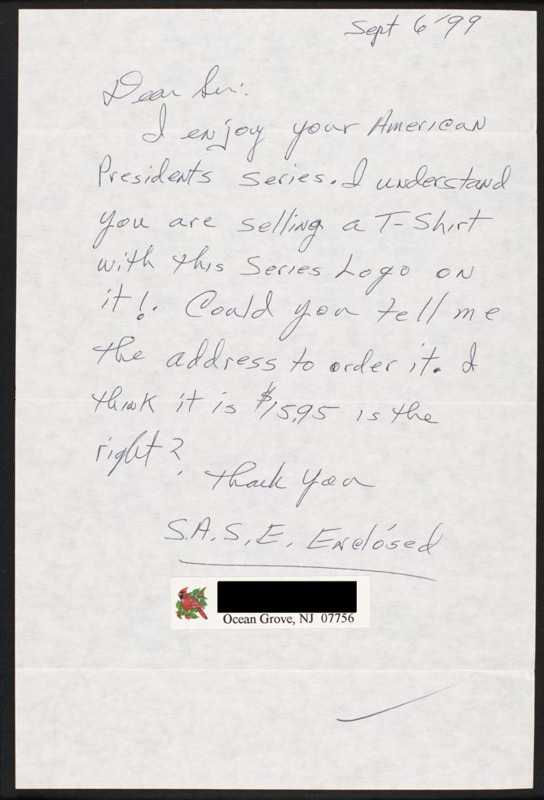 Sept 6 '99
Dear Sir:
I enjoy your American
Presidents series. I understand
you are selling a T-Shirt
with this Series Logo on
it!. Could you tell me
the address to order it. I
think it is $15.95 is the
right?
Thank You
S.A.S.E. Enclosed
Ocean Grove, NJ 07756